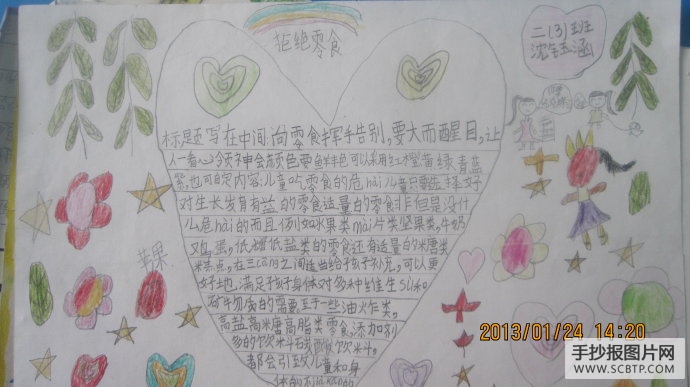 拒绝零食
二(3)班
沈钰涵
标题写在中间:向零食挥手告别,要大而醒目,让
人一看心领神会颜色要鲜丰色可以采用红橙黄绿青蓝
紫,也可自定内容:儿童吃零食的危hài儿童只要选择好
对生长发育有益的零食适量的零食非但是没什
么危hài的而且例如水果类mài片类坚果类,牛奶
鸡蛋,低糖低盐类的零食还有适量的米唐类
米羔点,在三cāng之间适当给孩子补充,可以更
好地满足孩子身体对多种维生sù和
矿牛勿质的需要至于一些油炸类,
高盐高米唐高脂类零食,添加剂
多的饮料碳酸饮料,
都会引致儿童和身
苹果
2013/01/24 14:20
手抄报图片网
WWW.SCBTP.COM